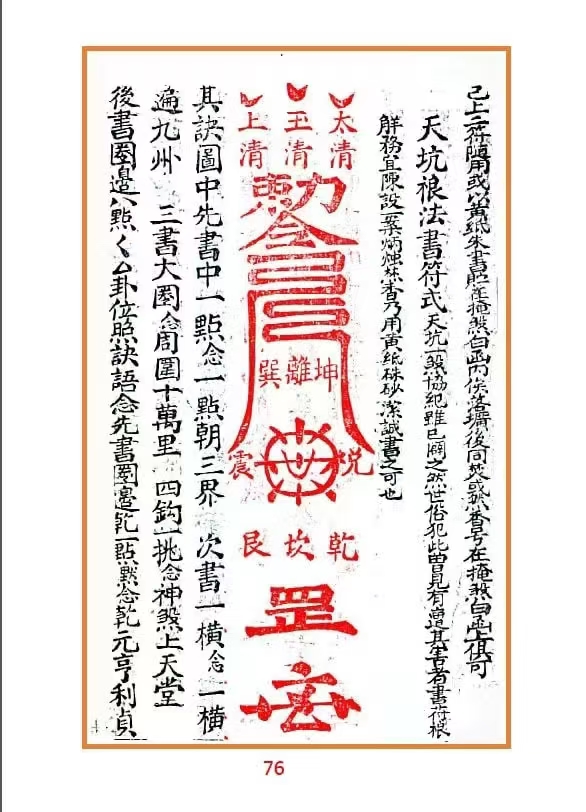 己上二符隨用或以黃紙朱書貼在掩煞白函內俟落壙後同焚或孤香号在掩煞白函上俱可
天坑根法書符式天坑一煞協紀雖已闢之然世俗犯此曽見有遭其害者書符根
解務宜陳設一案炳燭焚香乃用黃紙硃砂潔誠書之可也
太清
玉清
上清
勅令
坤離巽
兌
震
乾坎艮
罡
其訣圖中先書中一點念一點朝三界 次書一橫念一橫
遍九州 三書大圈念周圍十萬里 四鈎一挑念神煞上天堂
後書圈邊八點く厶卦位照訣語念先書圈邊乾一點默念乾元亨利貞
76